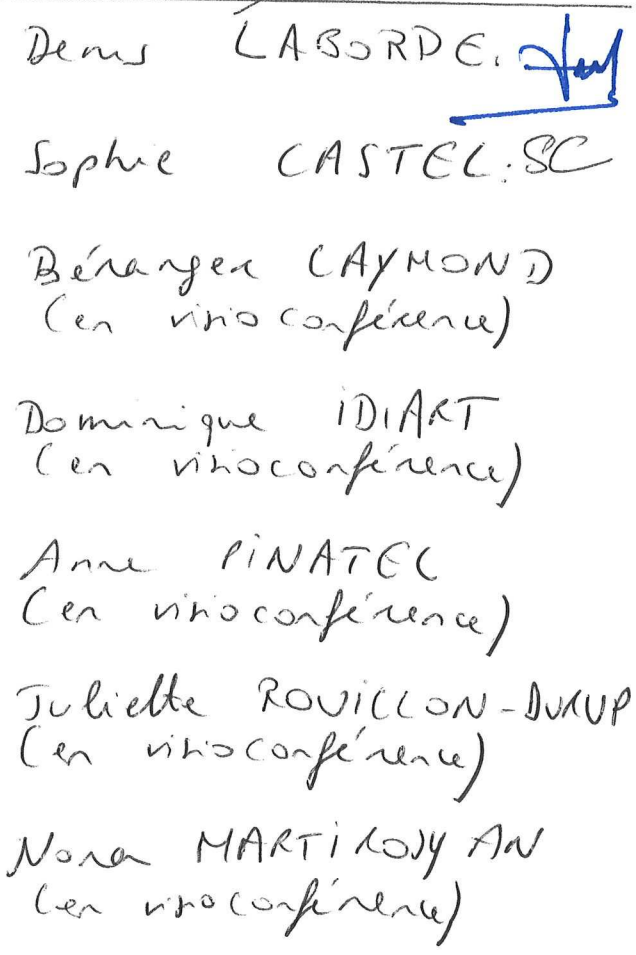 Denis LABORDE.
Sophie CASTEL. SC
Béranger CAYMOND
(en visioconférence)
Dominique IDIART
(en visioconférence)
Anne PINATEL
(en visioconférence)
Juliette ROUILLON-DURUP
(en visioconférence)
Nora MARTIROSYAN
(en visioconférence)